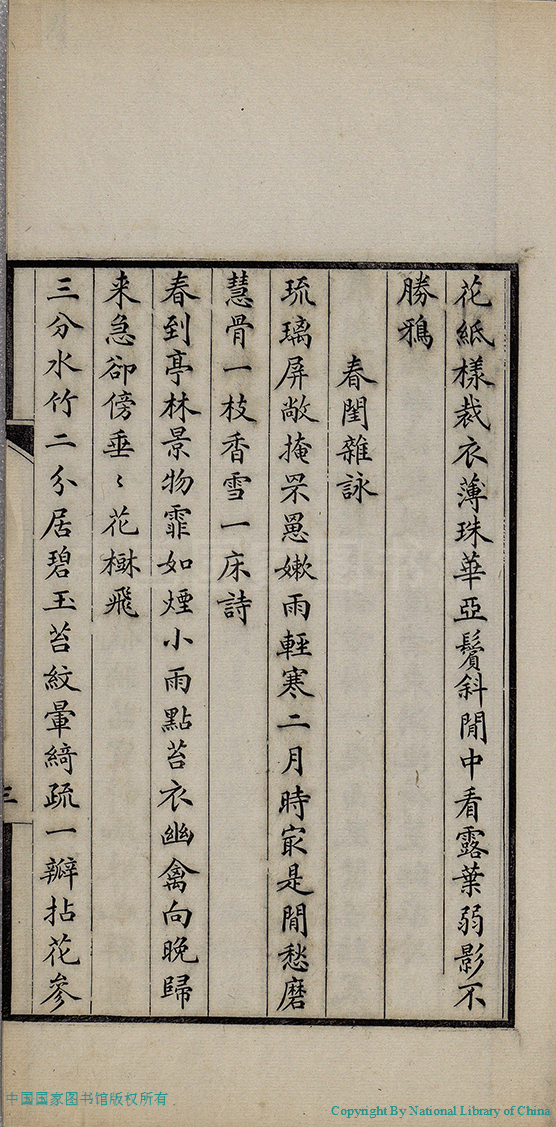 花紙様裁衣薄珠華亞鬢斜閒中看露葉弱影不
勝鴉
春閨雜詠
琉璃屏敞掩罘罳嫩雨輕寒二月時㝡是閒愁磨
慧骨一枝香雪一床詩
春到亭林景物霏如煙小雨點苔衣幽禽向晚歸
来急卻傍垂〻花樹飛
三分水竹二分居碧玉苔紋暈綺疏一瓣拈花參
三
中国国家图书馆版权所有
Copyright By National Library of China